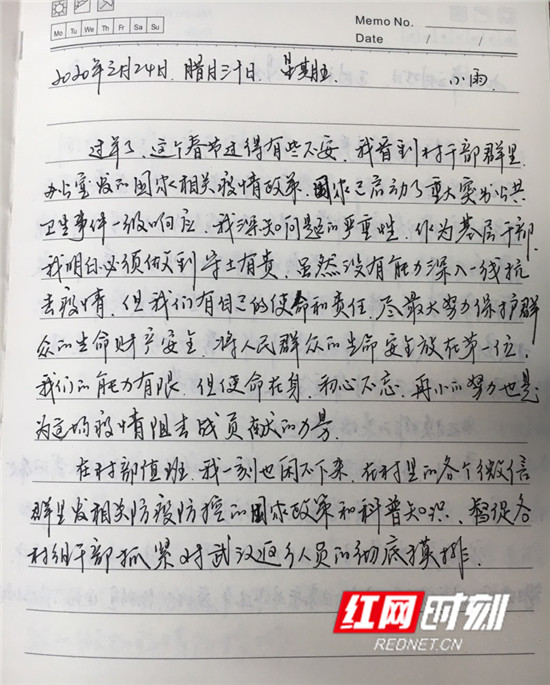 Mo Tu We Th Fr Sa Su
Memo No.
Date / /
2020年元月24日. 腊月三十日. 星期五. 小雨.
过年了、这个春节过得有些不安. 我看到村干部群里
办公室发的国家相关疫情政策. 国家已启动了重大突发公共
卫生事件一级响应. 我深知问题的严重性. 作为基层干部.
我明白必须做到守土有责. 虽然没有能力深入一线抗
击疫情. 但我们有自己的使命和责任. 尽最大努力保护群
众的生命财产安全. 将人民群众的生命安全放在第一位.
我们的能力有限. 但使命在身. 初心不忘. 再小的努力也是
为这场疫情阻击战贡献的力量.
在村部值班. 我一刻也闲不下来. 在村里的各个微信
群里发相关防疫防控的国家政策和科普知识. 督促各
村组干部抓紧对武汉返乡人员的彻底摸排.
红网时刻
REDNET.CN